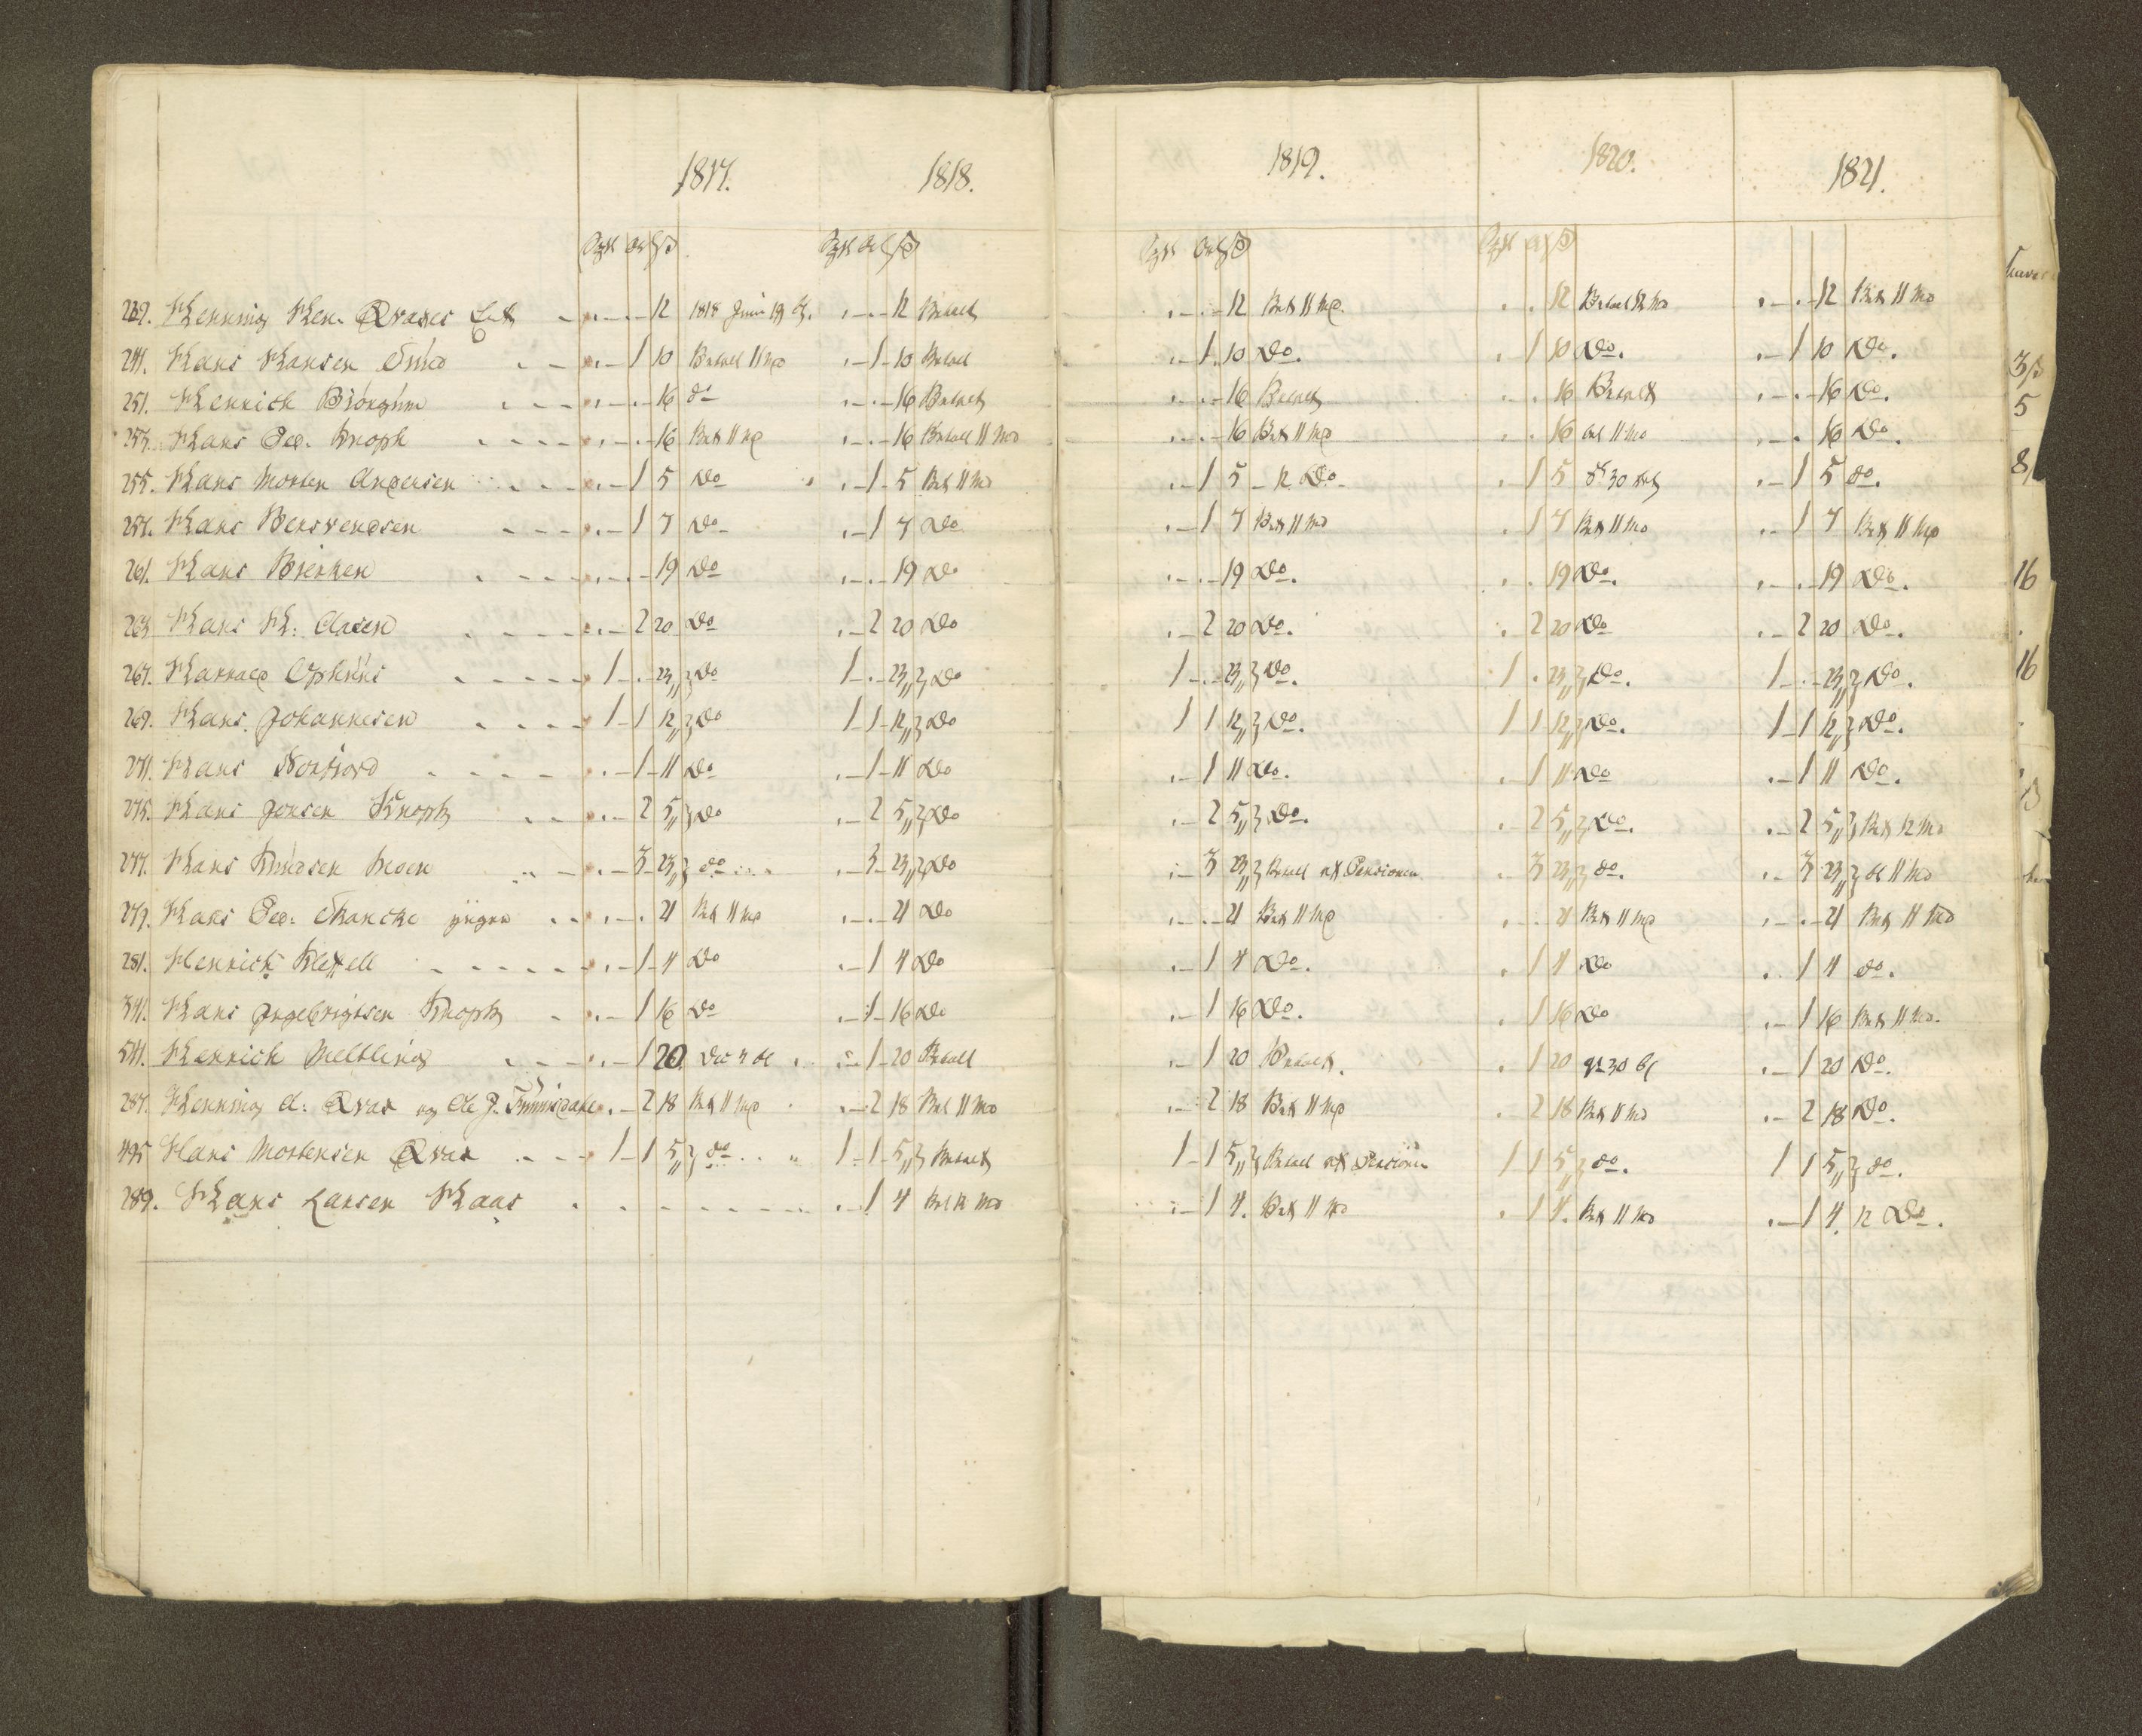 1817. 1818. 1819. 1820. 1821.
239. Henning Hen. Qvaxes - 12 1818 Juni 19 - 12 Betalt - 12 Bet 11 Md. 12 Betalt 12 Md - 12 Bet 11 Md
241. Hans Hansen - 1 10 Betalt 11 Md - 1 - 10 Betalt - 1 10 Do. 1 10 Do. - 1 10 Do.
251. Henrich - 16 do - 16 Betalt - 16 Betalt 16 Betalt - 16 Do.
253. Hans Ped. Knoph - 16 Bet 11 Md - 16 Betalt 11 Md - 16 Bet 11 Md 16 bet 11 Md 16 Do.
255. Hans Morten Andersen - 1 5 Do - 1 - 5 Bet 11 Md - 1 5 - 12 Do. 1 5 - 1 5 do.
257. Hans Bersvendsen - 1 7 Do - 1 7 Do - 1 7 Bet 11 Md 1 7 Bet 11 Md - 1 7 Bet 11 Md
261. Hans Bierken - 19 Do - 19 Do - 19 Do. 19 Do. - 19 Do.
263. Hans H: Aasen - 2 20 Do - 2 20 Do - 2 20 Do. - 2 20 Do - 2 20 Do.
267. Harrald Ophuus 1 - 23 Do 1 - 23 Do 1 - 23 Do. 1 23 Do. 1 - 23 Do.
269. Hans Johannesen 1 - 1 12 Do 1 1 - 12 Do 1 1 12 Do. 1 1 12 Do. 1 - 1 12 Do.
271. Hans Norfiord - 1 - 11 Do - 1 - 11 Do - 1 11 Do. 1 11 Do - 1 11 Do.
275. Hans Jonsen Knoph - 2 5 Do - 2 5 Do - 2 5 Do. 2 5 Do. - 2 5 Bet 12 Md
277. Hans Knudsen Moen - 3 - 23 do - 3 - 23 Do 3 23 Betalt af Pensionen 3 23 do. 3 23 11 Md
279. Hans Ped. Thancke yngre - 21 Bet 11 Md - 21 Do - 21 Bet 11 Md 21 Bet 11 Md - 21 Bet 11 Md
281. Henrich Klexell - 1 - 4 Do - 1 4 Do - 1 4 Do. 1 4 Do 1 4 do.
341. Hans Ingebrigtsen Knoph - 1 16 Do - 1 - 16 Do - 1 16 Do. 1 16 Do - 1 16 Bet 11 Md.
541. Henrich Meltling - 1 20 - 1 - 20 Betalt - 1 20 Betalt. 1 20 - 1 20 Do.
287. Henning A: Qvax og Ole J. - 2 18 Bet 11 Md - 2 18 Bet 11 Md - 2 18 Bet 11 Md 2 18 Bet 11 Md - 2 18 Do.
495 Hans Mortensen Qvax 1 - 1 5 do 1 - 1 - 5 Betalt 1 - 1 5 Betalt af Pensionen 1 1 5 do. 1 1 5 do.
289. Hans Larsen Haas - 1 4 Bet 12 Md - 1 4. Bet 11 Md 1 4. Bet 11 Md - 1 4. 12 Do.
5
8
16
16